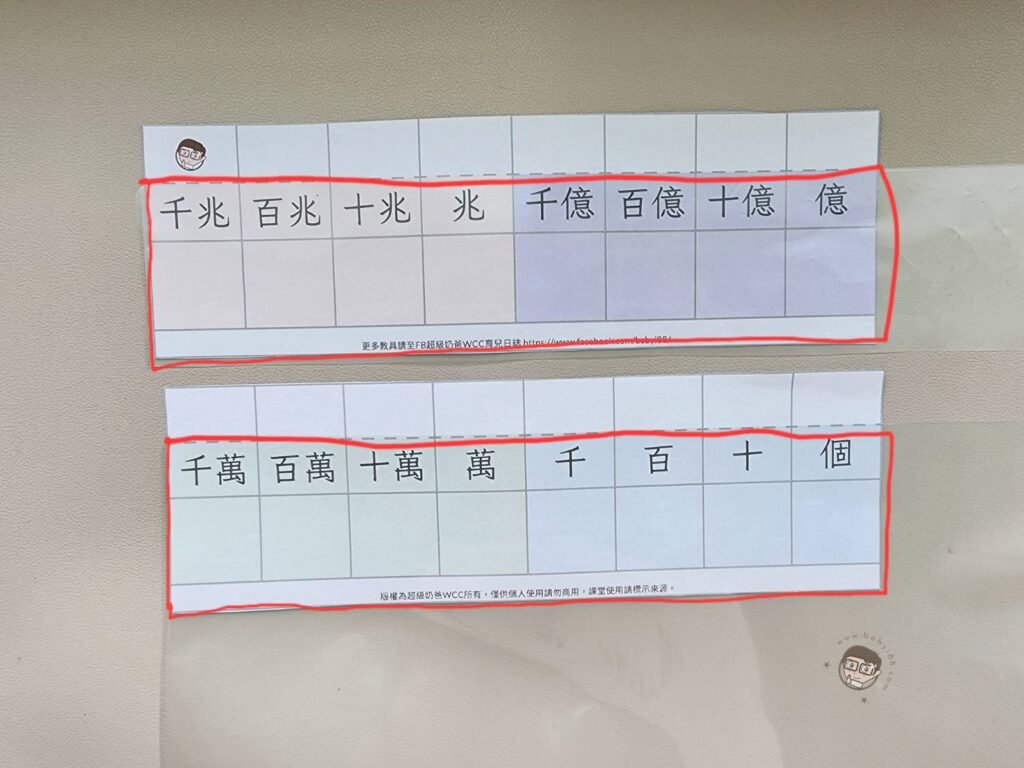 千兆 百兆 十兆 兆 千億 百億 十億 億
更多教具請至FB超級奶爸WCC育兒日誌 https://www.facebook.com/babyi88/
千萬 百萬 十萬 萬 千 百 十 個
版權為超級奶爸WCC所有,僅供個人使用請勿商用,課堂使用請標示來源。
www.baby88.com